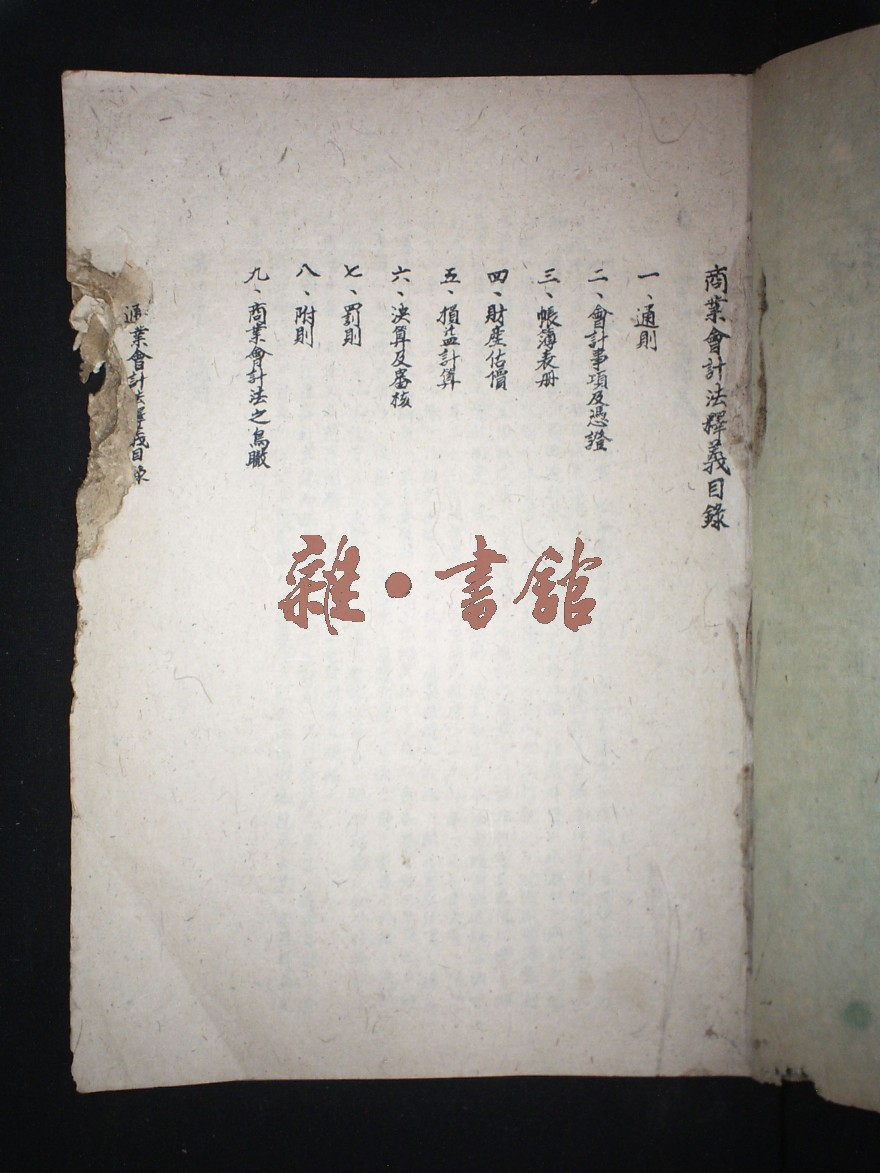 商業會計法釋義目錄
一、通則
二、會計事項及憑證
三、帳簿表册
四、財產估價
五、損益計算
六、決算及審核
七、罰則
八、附則
九、商業會計法之鳥瞰
業會計法釋義目錄
雜•書館